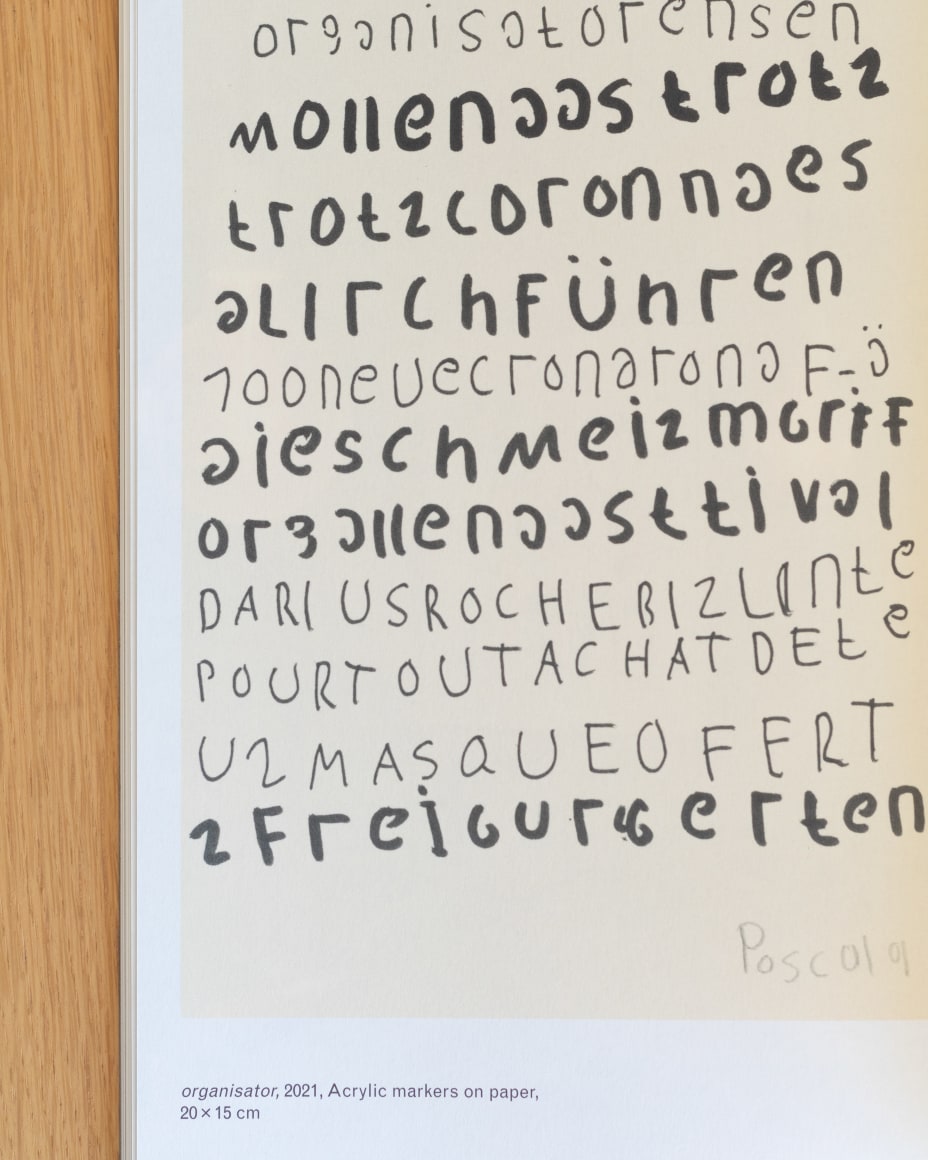 organisatorensen
wollendastrotz
trotzcoronnaes
durchFühren
100neuecronarona F-ä
dieschweizmoriF
orgallendasttival
DARIUSROCHEBIZLANtE
POURTOUTACHATDEte
U2MASQUEOFFERT
2Freigurgerten
organisator, 2021, Acrylic markers on paper,
20 × 15 cm